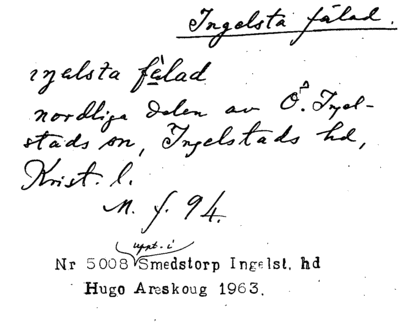 Ingelsta fälad.
ingelsta fälad
nordliga delen av Ö. Ingel-
stads sn, Ingelstads hd,
Krist. l.
M. f. 94.
uppt. i
Nr 5008 Smedstorp Ingelst. hd
Hugo Areskoug 1963.